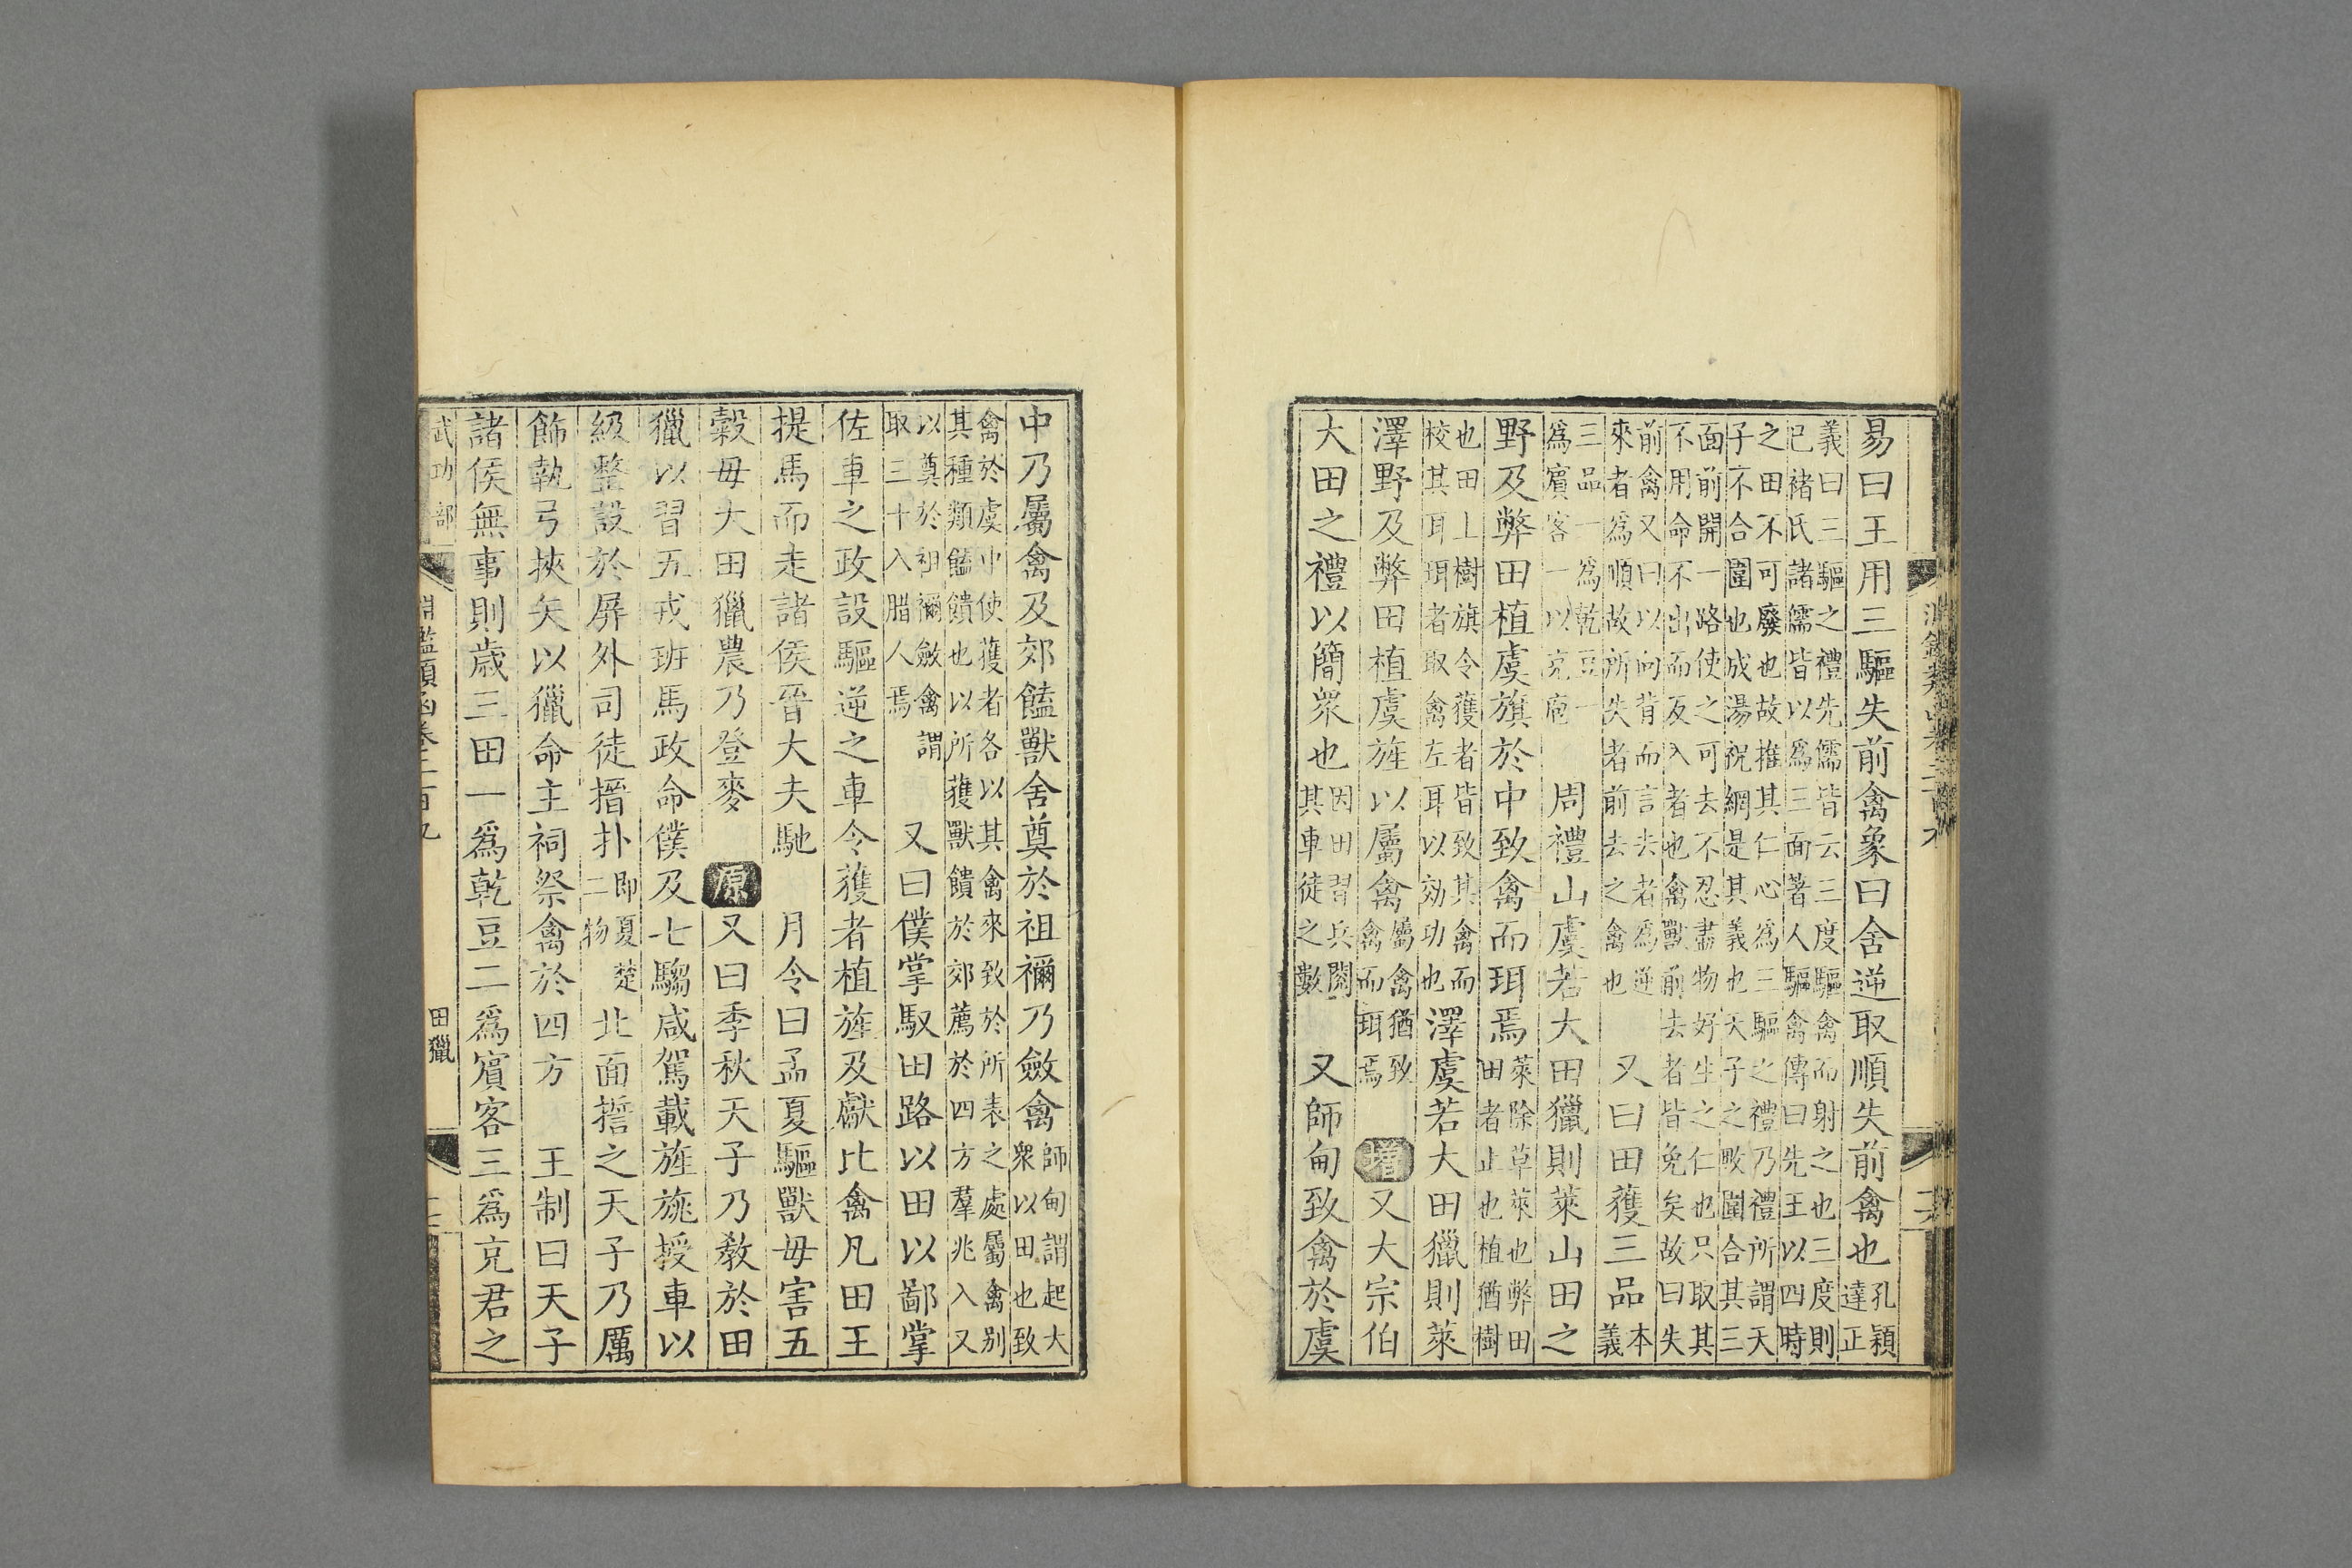 易曰王用三驅失前禽象曰舍逆取順失前禽也孔穎
達正
義曰三驅之禮先儒皆云三度驅禽而射之也三度則
已褚氏諸儒皆以爲三面著人驅禽傳曰先王以四時
之田不可廢也故推其仁心爲三驅之禮乃禮所謂天
子不合圍也成湯祝網是其義也天子之畋圍合其三
面前開一路使之可去不忍盡物好生之仁也只取其
不用命不出而反入者也禽獸前去者皆免矣故曰失
前禽又曰以向背而言去者爲逆
來者爲順故所失者前去之禽也
又曰田獲三品本
義
三品一爲乾豆一
爲賓客一以充庖
周禮山虞若大田獵則萊山田之
野及弊田植虞旗於中致禽而珥焉萊除草萊也弊田
田者止也植猶樹
也田上樹旗令獲者皆致其禽而
校其耳珥者取禽左耳以効功也
澤虞若大田獵則萊
澤野及弊田植虞旌以屬禽屬禽猶致
禽而珥焉
增又大宗伯
大田之禮以簡衆也因田習兵閱
其車徒之數
又師甸致禽於虞
中乃屬禽及郊饁獸舍奠於祖禰乃斂禽師甸謂起大
衆以田也致
禽於虞中使獲者各以其禽來致於所表之處屬禽別
其種類饁饋也以所獲獸饋於郊薦於四方羣兆入又
以奠於祖禰斂禽謂
取三十入腊人焉
又曰僕掌馭田路以田以鄙掌
佐車之政設驅逆之車令獲者植旌及獻比禽凡田王
提馬而走諸侯晉大夫馳 月令曰孟夏驅獸毋害五
穀毋大田獵農乃登麥 原又曰季秋天子乃教於田
獵以習五戎班馬政命僕及七騶咸駕載旌旐授車以
級整設於屏外司徒搢扑即夏楚
二物
北面誓之天子乃厲
飾執弓挾矢以獵命主祠祭禽於四方 王制曰天子
諸侯無事則歲三田一爲乾豆二爲賓客三爲充君之
武功部 淵鑑類函卷二百九 田獵